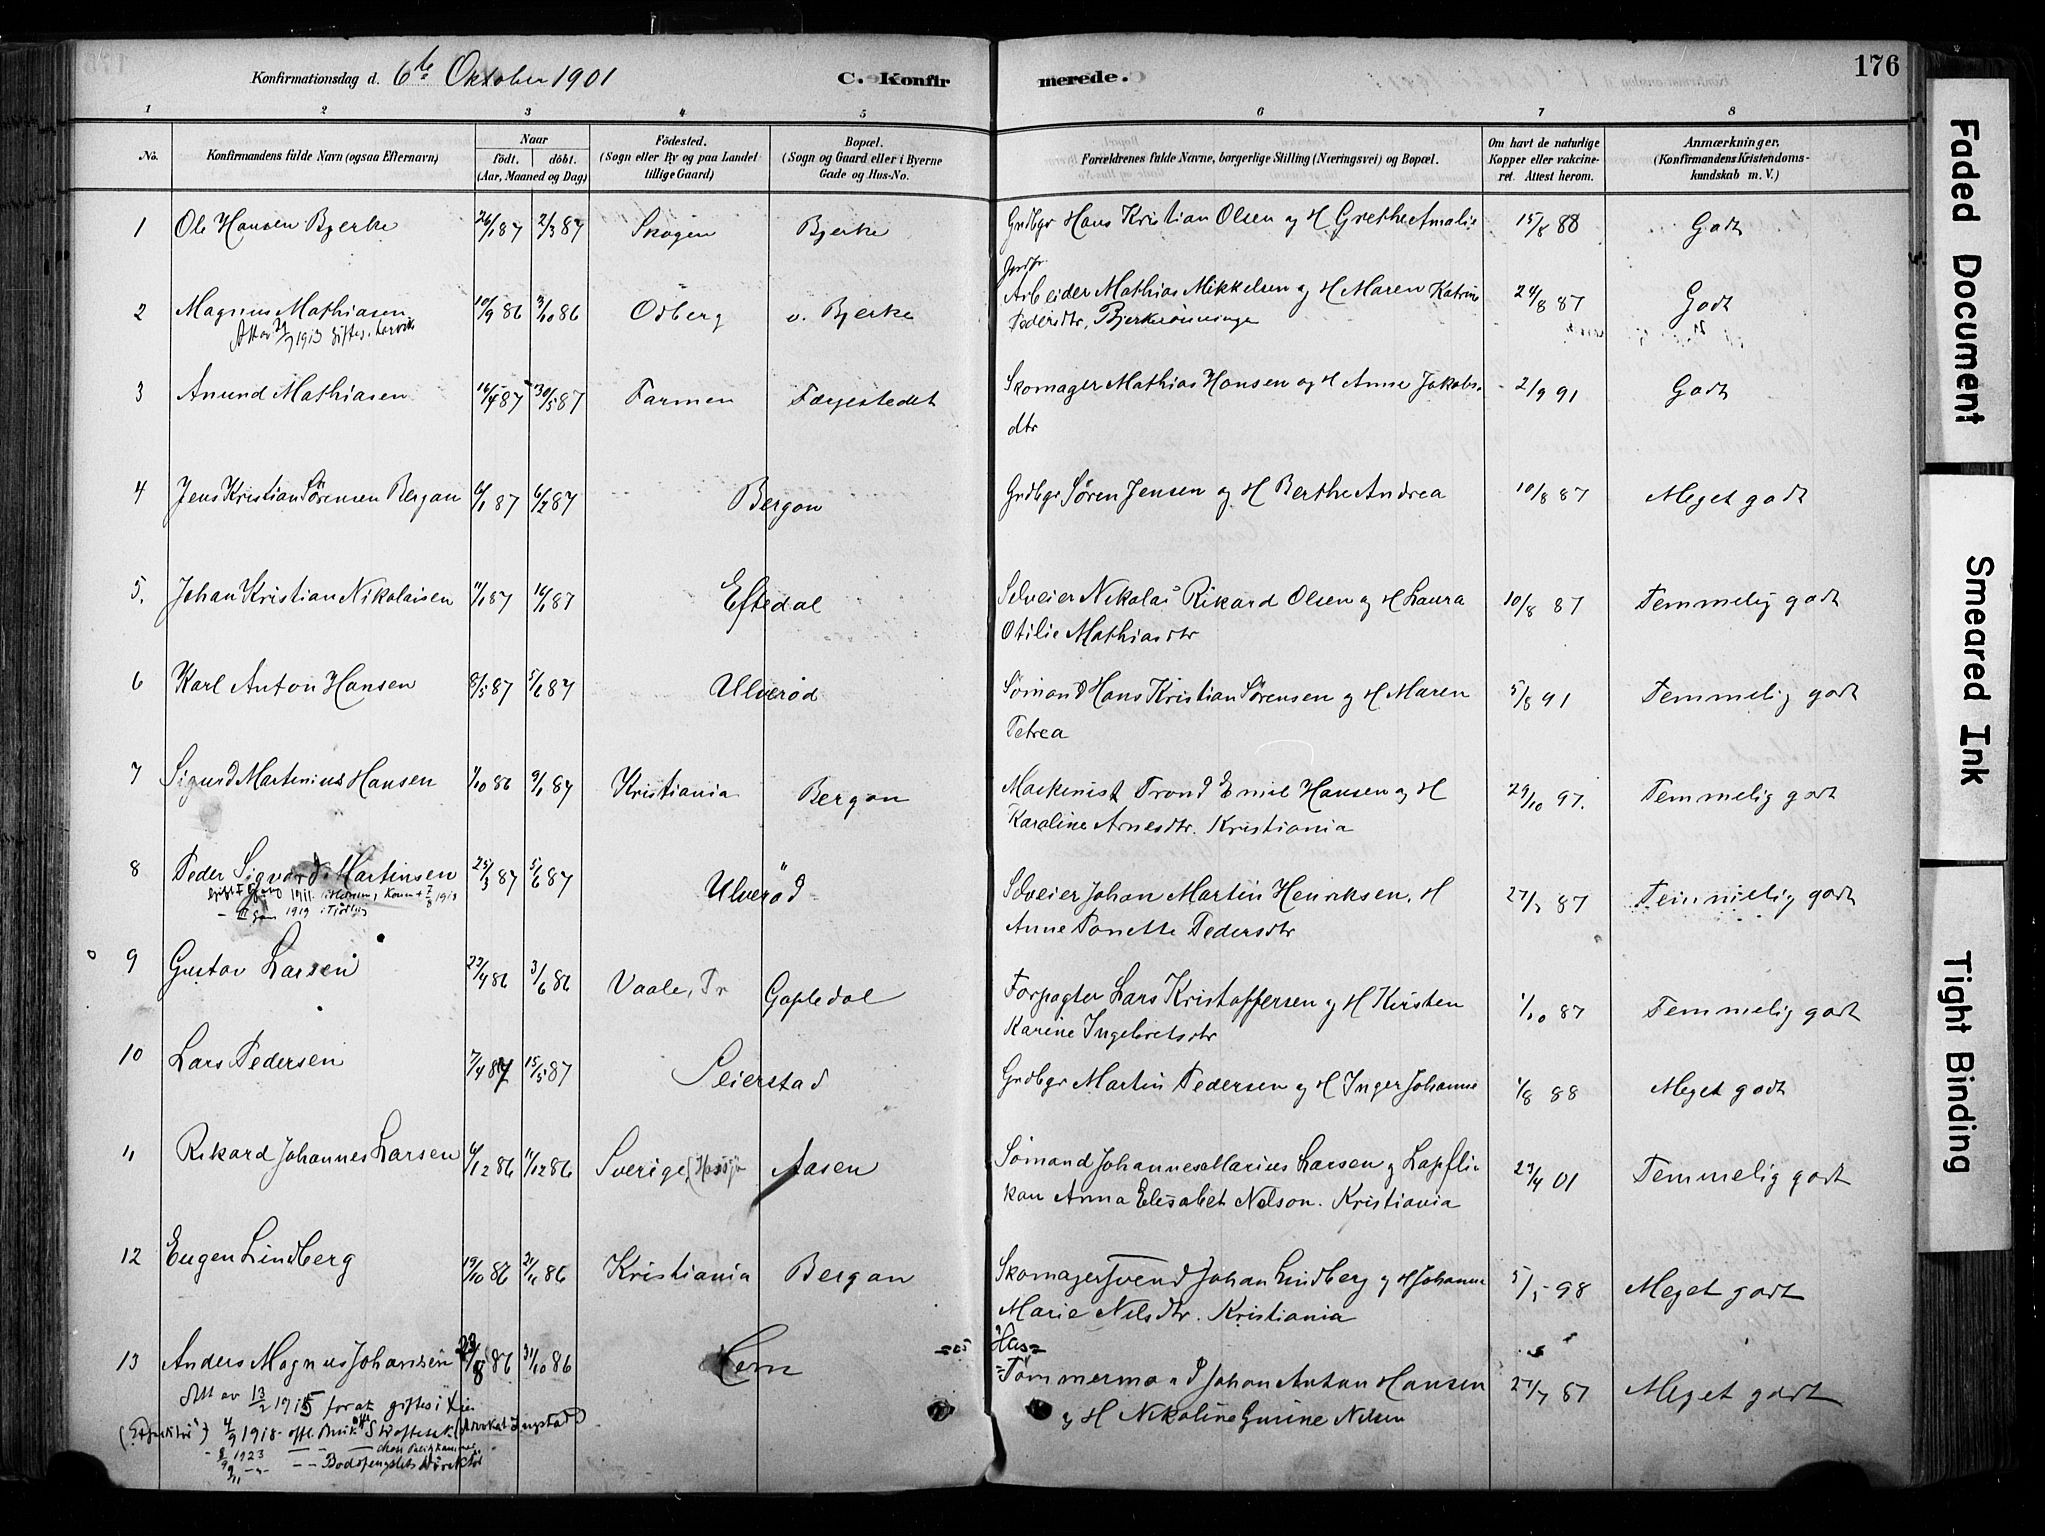 Konfirmationsdag d. 6te Oktober 1901 C. Konfirmerede. 176
1 2 3 4 5 6 7 8
No. Konfirmandens fulde Navn (ogsaa Efternavn) Naar födt. döbt. (Aar, Maaned og Dag) Födested. (Sogn eller By og paa Landet tillige Gaard) Bopæl. (Sogn og Gaard eller i Byerne Gade og Hus-No. Forældrenes fulde Navne, borgerlige Stilling (Næringsvei) og Bopæl. Om havt de naturlige Kopper eller vakcineret. Attest herom. Anmærkninger. (Konfirmandens Kristendomskundskab m. V.)
1 Ole Hansen Bjerke 26/1 87 2/3 87 Skogen Bjerke Grdbgr Hans Kristian Olsen og H Grethe Amalie 15/8 88 Godt
2 Magnus Mathiasen 10/9 86 3/10 86 Odberg v. Bjerke Arbeider Mathias Mikkelsen og H Maren Katrine 24/8 87 Godt
Pedersdtr,
3 Amund Mathiasen 16/4 87 30/5 87 Farmen Færgestedet Skomager Mathias Hansen og H Anne Jakobs- 2/9 91 Godt
dtr
4 Jens Kristian Sørensen Bergan 6/1 87 6/2 87 Bergan Grdbgr Søren Jensen og H Berthe Andrea 10/8 87 Meget godt
5. Johan Kristian Nikolaisen 11/1 87 Eftedal Selveier Nikolai Rikard Olsen og H Laura 10/8 87 Temmelig godt
Otilie Mathiasdtr
6 Karl Anton Hansen 8/5 87 5/6 87 Ulverød Sømand Hans Kristian Sørensen og H Maren 5/8 91 Temmelig godt
Petrea
7 Sigurd Martinius Hansen 1/10 86 9/1 87 Kristiania Bergan Maskinist Trond Emil Hansen og H 29/10 97. Temmelig godt
Karoline Arnesdtr. Kristiania
8 Peder Sigvard Martinsen 25/3 87 5/6 87 Ulverød Selveier Johan Martin Henriksen, H 27/7 87 Temmelig godt
Anne Tonette Pedersdtr
9 Gustav Larsen 23/4 86 3/6 86 Vaale, Tr Gopledal Forpagter Lars Kristoffersen og H Kirsten 1/10 87 Temmelig godt
Karine Ingebretsdtr
10 Lars Pedersen 7/4 87 15/5 87 Seierstad Grdbgr Martin Pedersen og H Inger Johanne 1/8 88 Meget godt
11 Rikard Johannes Larsen 6/12 86 11/12 86 Sverige Aasen Sømand Johannes Marius Larsen og Lapfli- 29/4 01 Temmelig godt
kan Anna Elisabet Nelson. Kristiania
12 Eugen Lindberg 19/10 86 21/11 86 Kristiania Bergan Skomagersvend Johan Lindberg og H Johanne 5/5 98 Meget godt
Marie Nilsdtr. Kristiania
13 Anders Magnus Johansen 23/8 86 31/10 86 Hem Tømmermand Johan Anton Hansen 27/7 87 Meget godt
og H Nikoline Gurine Nilsen
Att av 13/2 1915 for at giftes i
4/9 1918
1923
Faded Document
Smeared Ink
Tight Binding